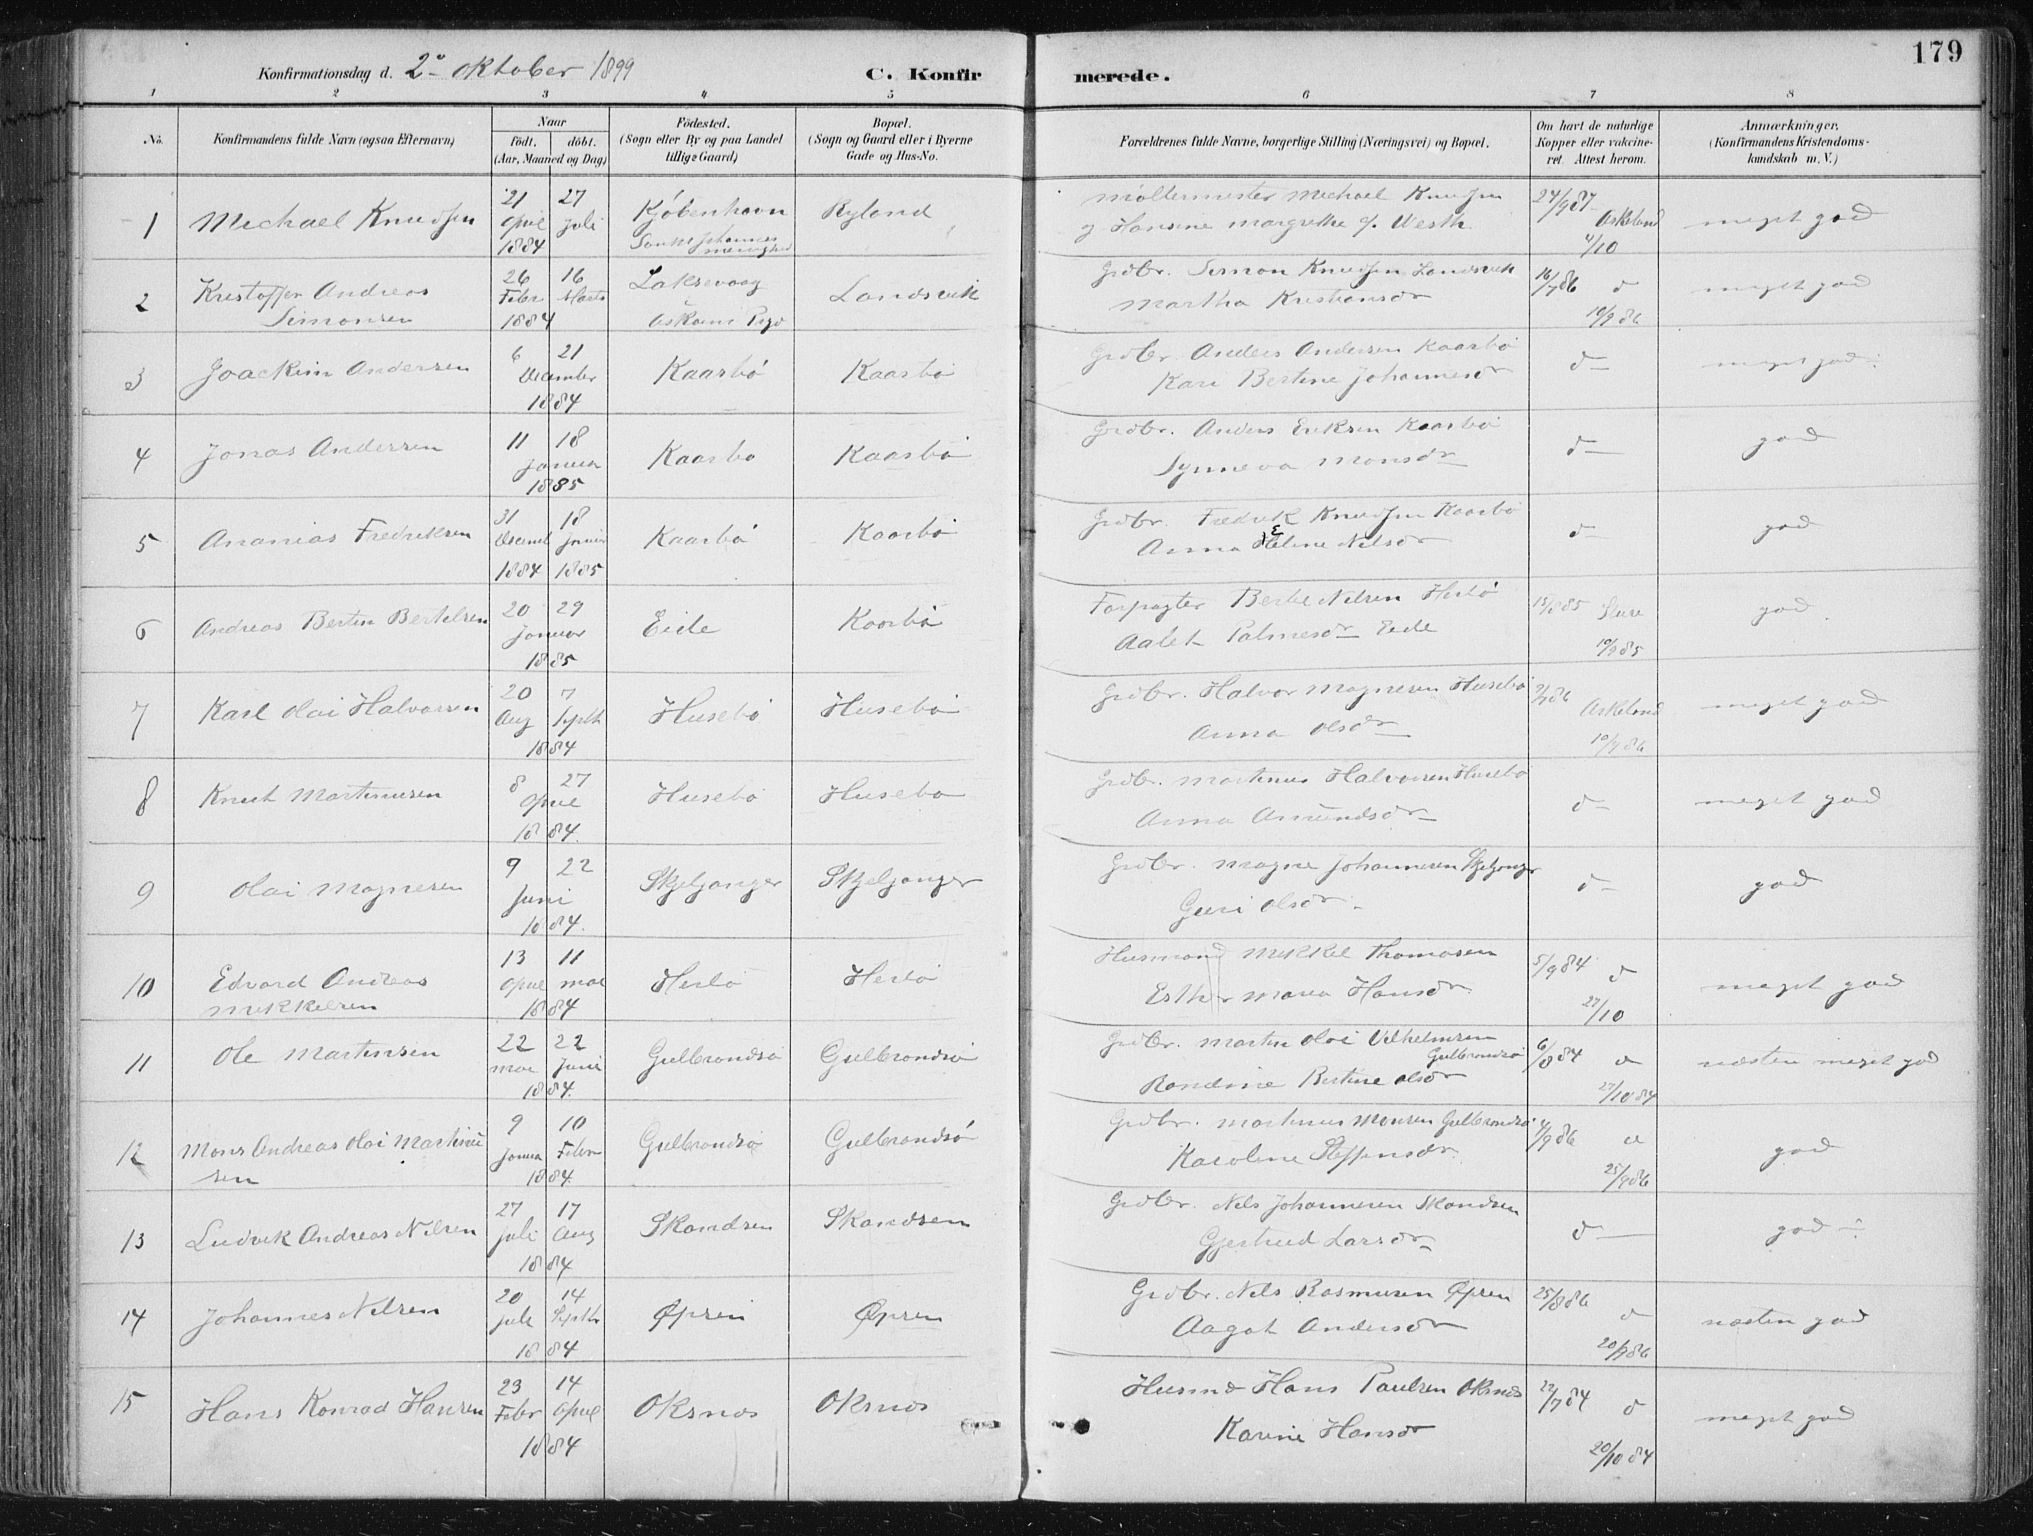 179
Konfirmationsdag d. 2den oktober 1899 C. Konfirmerede.
1 2 3 4 5 6 7 8
No. Konfirmandens fulde Navn (ogsaa Efternavn) Naar Födt. döbt. (Aar, Maaned og Dag) Födested. (Sogn eller By og paa Landet tillige Gaard) Bopæl. (Sogn og Gaard eller i Byerne Gade og Hus-No. Forældrenes fulde Navne, borgerlige Stilling (Næringsvei) og Bopæl. Om havt de naturlige Kopper eller vakcineret. Attest herom. Anmærkninger. (Konfirmandens Kristendomskundskab m. V.)
1 Michael Knudsen 21 April 1884 27 Juli Kjöbenhavn Sankt Johannes menighed Ryland Møllermester Michael Knudsen
og Hansine Margrethe f. Westh 24/9 87 Askeland 4/10 meget god
2 Kristoffer Andreas Simonsen 26 Febr 16 Marts 1884 Laksevaag Askøens Prgd Landsvik Grdbr. Simon Knudsen Landsvik
Martha Kristiansdr 16/7 86 do 10/9 86 meget god
3 Joackim Andersen 6 21 December 1884 Kaarbö Kaarbö Grdbr. Anders Andersen Kaarbö
Kari Bertine Johannesdr do meget god
4 Jonas Andersen 11 18 Januar 1885 Kaarbö Kaarbö Grdbr. Anders Eriksen Kaarbö
Synneva Monsdr do god
5 Ananias Fredriksen 31 Decembr 1884 18 Januar 1885 Kaarbö Kaarbö Grdbr. Fredrik Knudsen Kaarbö
Anna Elene Nilsdr do god
6 Andreas Bertin Bertelsen 20 29 Januar 1885 Eide Kaarbö Forpagter Bertel Nilsen Herlö
Aalet Palmesdr Eide 15/8 85 Sture 10/9 85 god
7 Karl Olai Halvorsen 20 Aug 7 Septb 1884 Husebö Husebö Grdbr. Halvor Magnesen Husebö
Anna Olsdr 2/7 86 Askeland 10/9 86 meget god
8 Knut Martinusen 8 27 April 1884 Husebö Husebö Grdbr. Martinus Halvorsen Husebö
Anna Amundsdr do meget god
9 Olai Magnesen 9 22 Juni 1884. Skjeljanger Skjeljanger Grdbr. Magne Johannesen Skjeljanger
Guri Olsdr do god
10 Edvard Andreas Mikkelsen 13 April 11 mai 1884 Herlö Herlö Husmand Mikkel Thomasen
Esther Maria Hansdr 5/9 84 do 27/10 meget god
11 Ole Martinsen 22 mai 22 Juni 1884. Gulbrandsö Gulbrandsö Grdbr. Martin Olai Vilhelmsen Gulbrandsö
Randine Bertine Olsdr 6/8 84 do 27/10 84 næsten meget god
12 Mons Andreas Olai Martinusen 9 Januar 10 Febr 1884. Gulbrandsö Gulbrandsö Grdbr. Martinus Monsen Gulbrandsö
Karoline Steffensdr 4/9 86 do 25/9 86 god
13 Ludvik Andreas Nilsen 27 Juli 17 Aug 1884 Skandsen Skandsen Grdbr. Nils Johannesen Skandsen
Gjertrud Larsdr do god
14 Johannes Nilsen 20 Juli 14 Septbr 1884 Øpsen Øpsen Grdbr. Nils Rasmusen Øpsen
Aagot Andersdr 25/8 86 do 20/9 86 næsten god
15 Hans Konrad Hansen 23 Febr 14 April 1884 Oksnes Oksnes Husmd Hans Paulsen Oksnes
Karine Hansdr 22/7 84 do 20/10 84 meget god